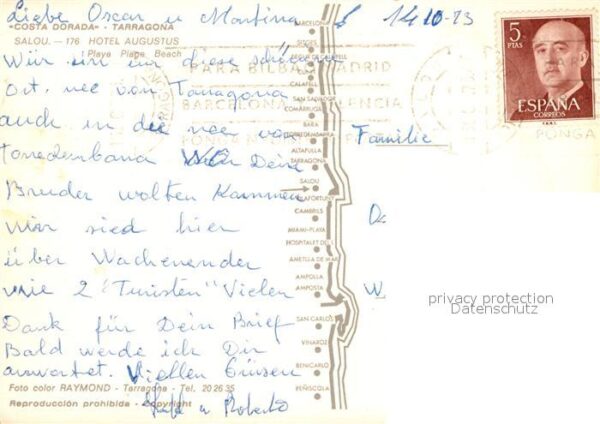 Liebe Oscar u Martina
14 10-73
"COSTA DORADA" - TARRAGONA
SALOU. - 176 HOTEL AUGUSTUS
Playa Plage Beach
Wir sin in diese schönen
Ort. nee von Tarragona
auch in die nee von
Toredenbana Dein
Bruder wolten Kommen
wir sied hier
über Wachenender
wie 2 "Turisten" Vielen
Dank für Dein Brief
Bald werde ich Dir
anwortet. Viellen Grüsen
u Roberto
Foto color RAYMOND - Tarragona - Tel. 20 26 35
Reproducción prohibida - Copyright
PARA BILBAO MADRID
BARCELONA VALENCIA
PONGA
Familie
BARCELONA
SITGES
CALAFELL
SAN SALVADOR
COMARRUGA
BARA
TORREDEMBARRA
ALTAFULLA
TARRAGONA
SALOU
VILAFORTUNY
CAMBRILS
MIAMI-PLAYA
HOSPITALET DEL I.
AMETLLA DE MAR
AMPOLLA
AMPOSTA
SAN CARLOS
VINAROZ
BENICARLO
PEÑISCOLA
5
PTAS
ESPAÑA
CORREOS
F.N.M.T.
PONGA
privacy protection
Datenschutz